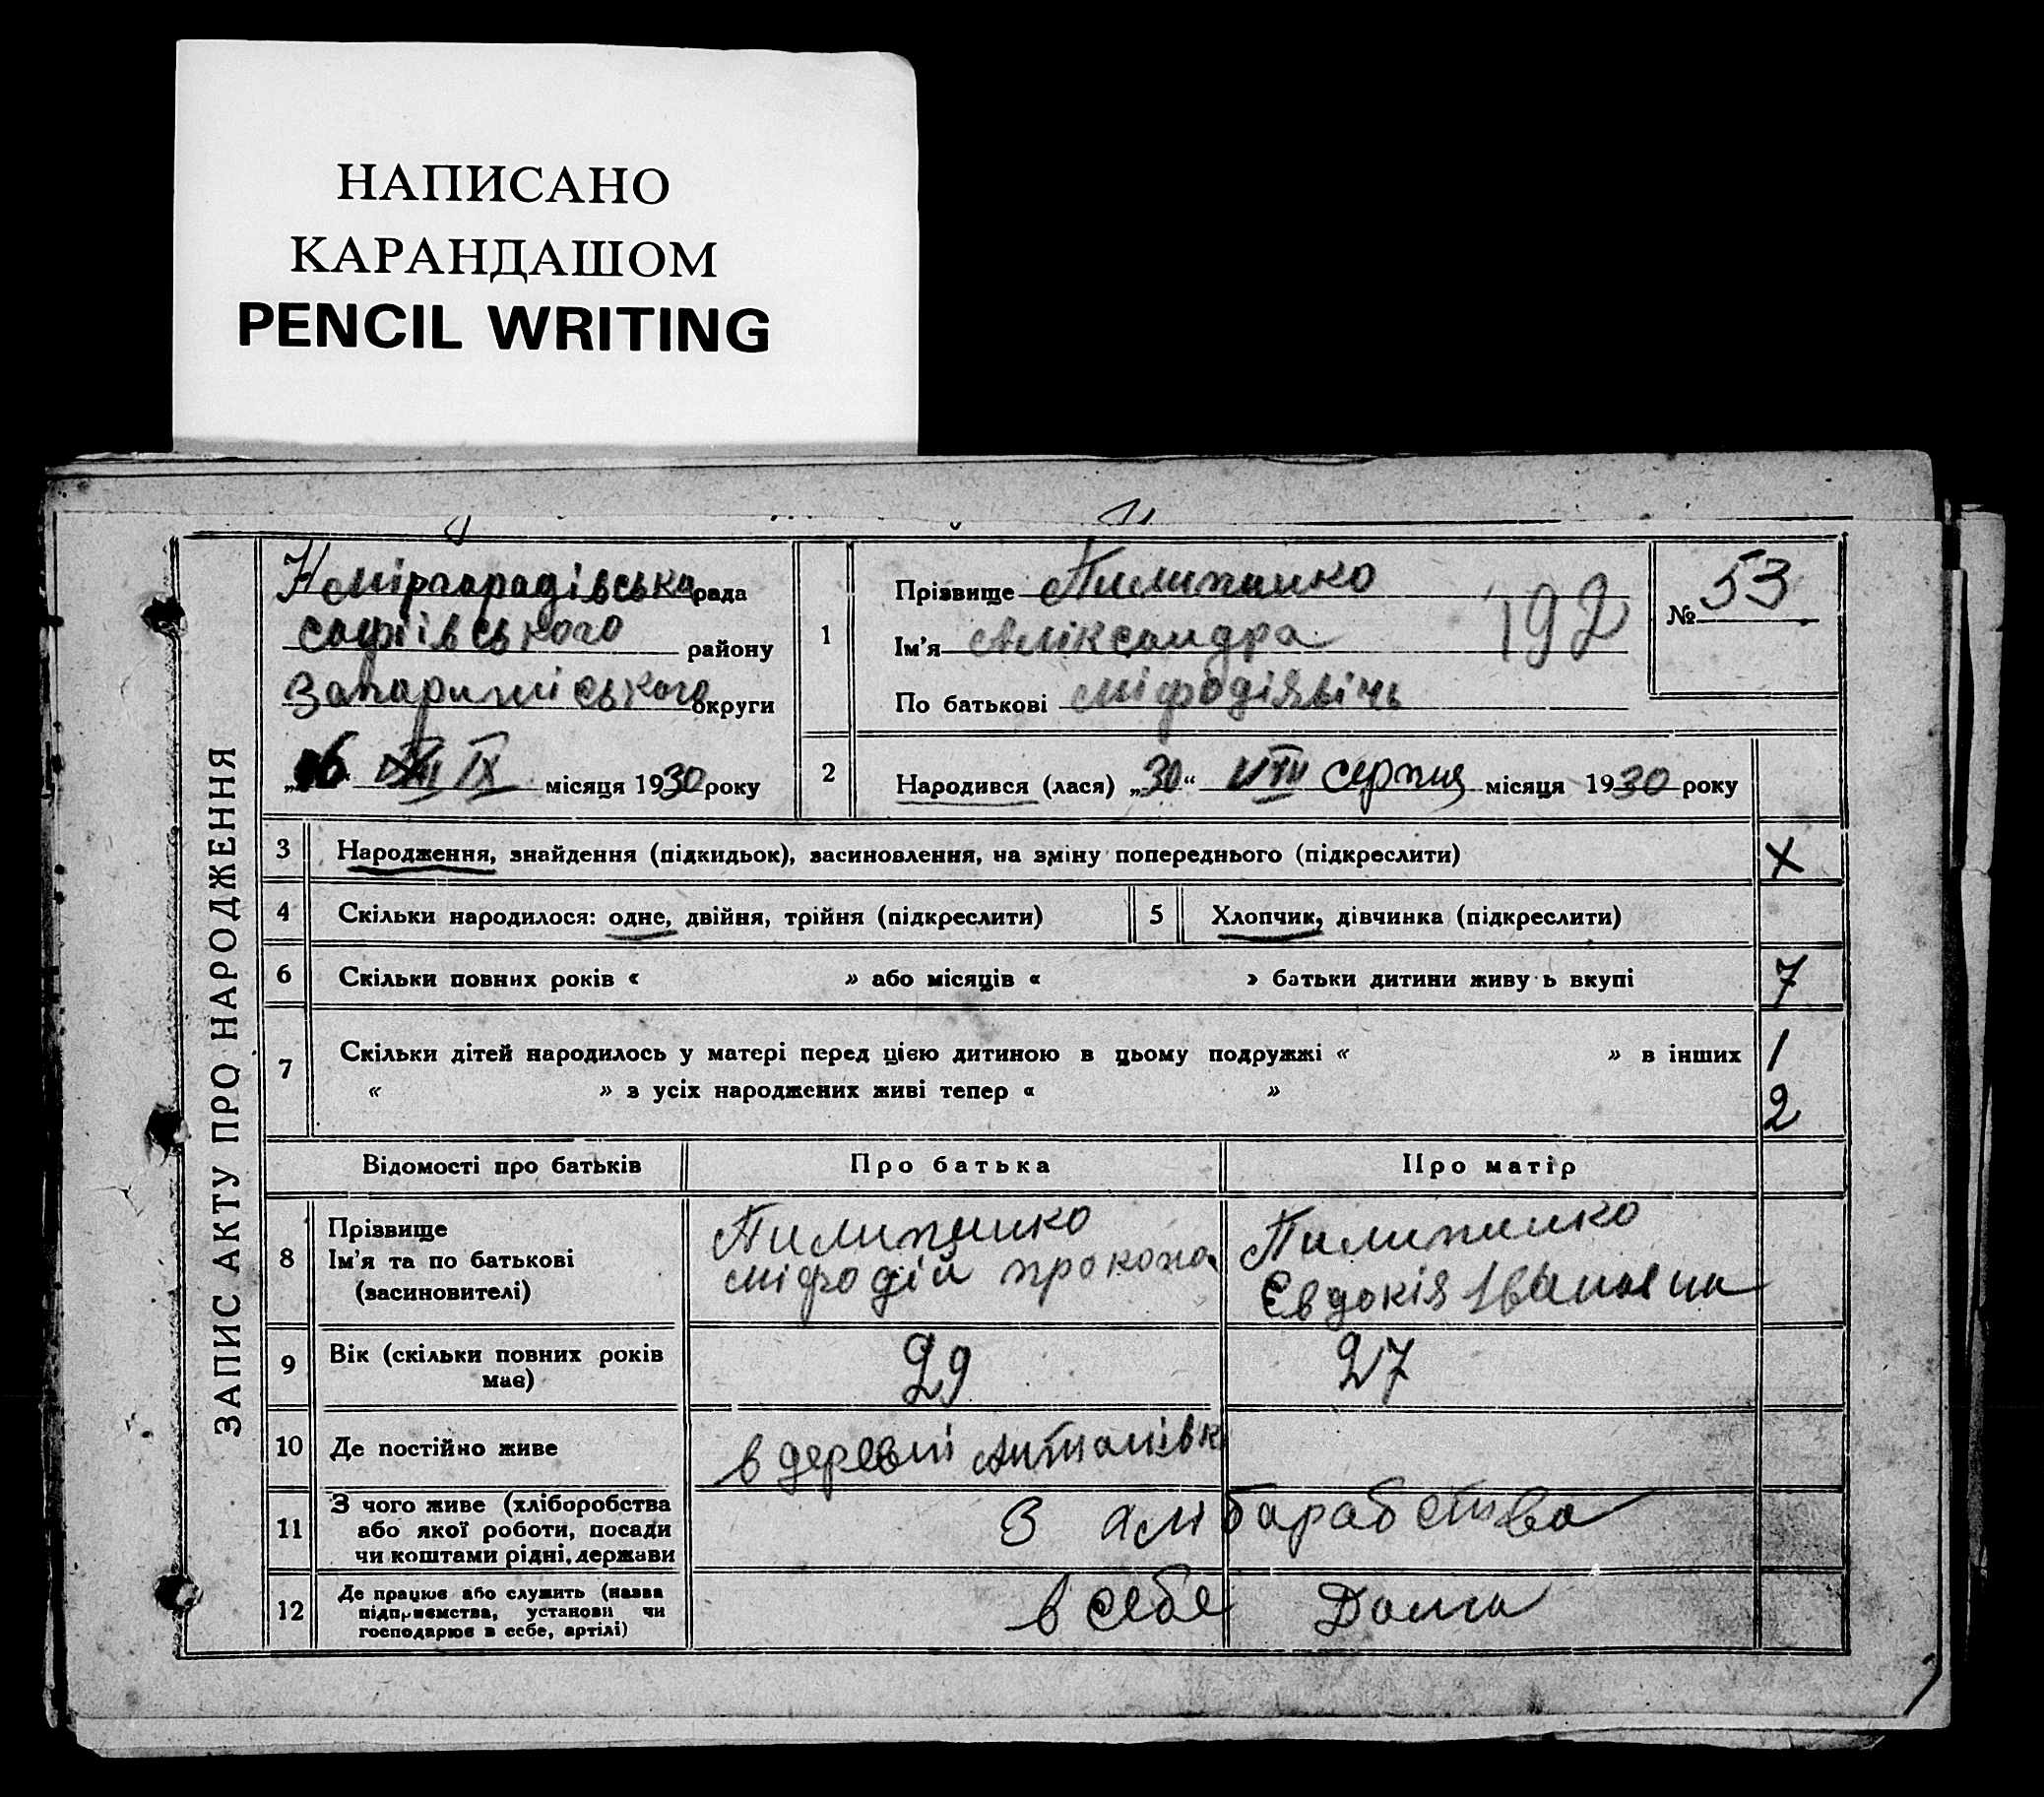 НАПИСАНО
КАРАНДАШОМ
PENCIL WRITING
ЗАПИС АКТУ ПРО НАРОДЖЕННЯ
Н Міргарадівська рада
Софіївського району
Запаришіського округи
„16“ IX місяця 1930 року
1
Прізвище Пилипинко
Ім'я Аліксандра
192
По батькові Міфодіявічь
№ 53
2 Народився (лася) „30“ VIII серпня місяця 1930 року
3 Народження, знайдення (підкидьок), засиновлення, на зміну попереднього (підкреслити) X
4 Скільки народилося: одне, двійня, трійня (підкреслити) 5 Хлопчик, дівчинка (підкреслити)
6 Скільки повних років « » або місяців « » батьки дитини живу ь вкупі 7
7 Скільки дітей народилось у матері перед цією дитиною в цьому подружжі « » в інших 1
« » з усіх народжених живі тепер « » 2
Відомості про батьків Про батька Про матір
8 Прізвище
Ім'я та по батькові
(засиновителі)
Пилипинко
Міфодій прокопа
Пилипинко
Євдокія Івановна
9 Вік (скільки повних років має) 29 27
10 Де постійно живе в деревні Антанівк
11 З чого живе (хліборобства
або якої роботи, посади
чи коштами рідні, держави
З хлібарабства
12 Де працює або служить (назва
підприємства, установи чи
господарює в себе, артілі)
в себе Дома